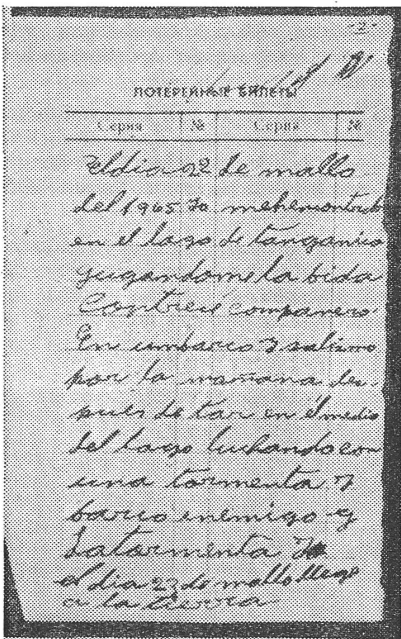 -2-
ЛОТЕРЕЙНЫЕ БИЛЕТЫ
Серия № Серия №
El dia 22 de mallo
del 1965 yo mehencontrab
en el lago de tanganica
gugandome la bida
con trece companero
En umbarco y salimo
por la manana des-
pues de tar en el medio
del lago luchando con
una tormenta y
barco enemigo y
la tarmenta
el dia 23 de mallo llege
a la tierra